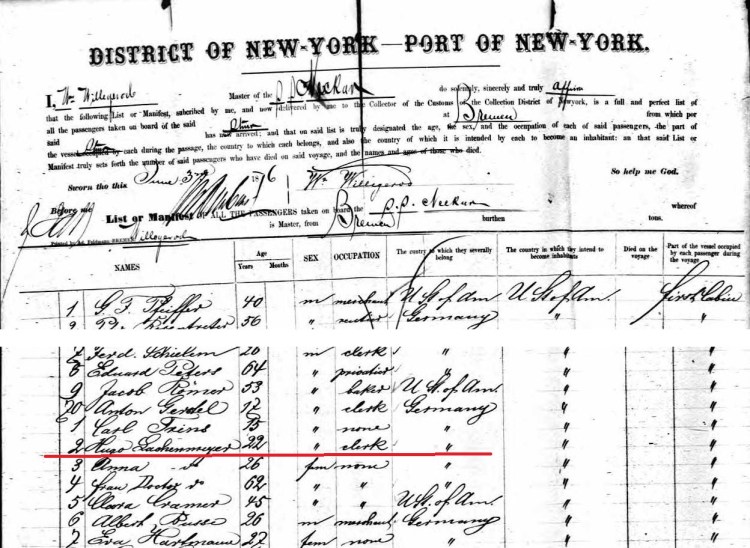 DISTRICT OF NEW-YORK—PORT OF NEW-YORK.
I, Wm Willigerod Master of the S.S. Neckar do solemnly, sincerely and truly affirm
that the following List or Manifest, subcribed by me, and now delivered by me to the Collector of the Customs of the Collection District of Newyork, is a full and perfect list of
all the passengers taken on board of the said Stmr at Bremen from which port
said Stmr has now arrived; and that on said list is truly designated the age, the sex, and the occupation of each of said passengers, the part of
the vessel occupied by each during the passage, the country to which each belongs, and also the country of which it is intended by each to become an inhabitant: an that said List or
Manifest truly sets forth the number of said passengers who have died on said voyage, and the names and ages of those who died.
So help me God.
Sworn tho this June 3rd 1876 Wm Willigerod
Before me
List or Manifest OF ALL THE PASSENGERS taken on board the S.S. Neckar whereof
Willigerod is Master, from Bremen burthen tons.
Printed by Ad. BREMEN
NAMES Age Years Months SEX OCCUPATION The country to which they severally belong The country in which they intend to become inhabitants Died on the voyage Part of the vessel occupied by each passenger during the voyage
1 G. F. Pfeiffer 40 m merchant U St of Am. U St of Am. first Cabin
2 56 " rentier Germany " "
7 Ferd. 26 m clerk " " "
8 Eduard Peters 64 " privatier " " "
9 Jacob Reimer 53 " baker U St. of Am. " "
20 Anton Gerdel 17 " clerk Germany " "
1 Carl Prins 15 " none " " "
2 Hugo Lachenmeyer 22 " clerk " " "
3 Anna do 26 fem none " " "
4 Frau Doctor do 62 " " " " "
5 Clara Cramer 45 " " U St. of Am. " "
6 Albert Busse 26 m merchant Germany " "
7 Eva Hartmann 27 fem none " " "